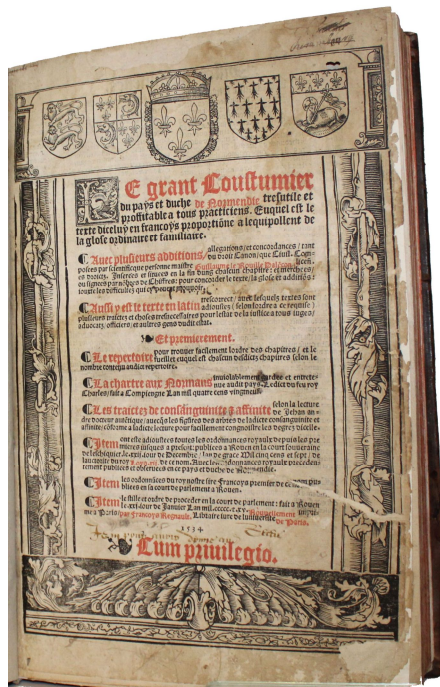 LE grant Coustumier
du pays et duche de Normendie tresutile et
profitable a tous practiciens. Euquel est le
texte diceluy en francoys proportiõne a lequipollent de
la glose ordinaire et familiaire.
¶ Auec plusieurs additions / allegations / et concordances / tant
du droit Canon / que Ciuil. Com-
posees par scientificque personne maistre Guillaume le Rouille
es droictz. Inserees et situees en la fin dung chascun chapitre : et
ou signees par de Chiffres : pour concorder le texte / la glose et additiõs :
¶ Aussi y est le texte en latin trescorect / auec lesquelz textes sont
adioustez / selon lordre a ce requise :
plusieurs et choses necessaires pour lestat de la iustice a tous iuges /
aduocatz, officiers / et autres gens dudit estat.
¶ Et premierement.
¶ Le repertoire pour trouuer facilement lordre des chapitres / et le
fueillet euquel est chascun desdictz chapitres selon le
nombre contenu audict repertoire.
¶ La chartre aux Normans inuiolablement gardee et entrete-
nue audit pays. Ledict du feu roy
Charles / fait a Compiengne Lan mil quatre cens vingt
¶ Les traictez de consanguinite & affinite selon la lecture
de Jehan an-
dre docteur auecqs les figures des arbres de ladicte consanguinite et
affinite / cõforme a ladicte lecture pour facillement congnoistre les degrez dicelle.
¶ Item ont este adioustez toutes les ordonnances royaulx depuis les pre
mieres iusques a present : publices a Rouen en la court souueraine
de leschiquier de Decembre / lan de grace Mil cinq cens et
de ce nom. Auec les ordonnances royaulx preceden-
tement publices et obseruees en ce pays et duche de Normendie.
¶ Item les ordonnãces du roy nostre sire Francoys premier de ce nom pu
bliees en sa court de parlement a Rouen.
¶ Item le stille et ordre de proceder en la court de parlement : fait a Rouen
le iour de Januier Lan mil.ccccc.et.xv. Nouuellement impri-
me a Paris par Francoys Regnault, Libraire iure de luniuersite
de Paris.
1534
Cum priuilegio.